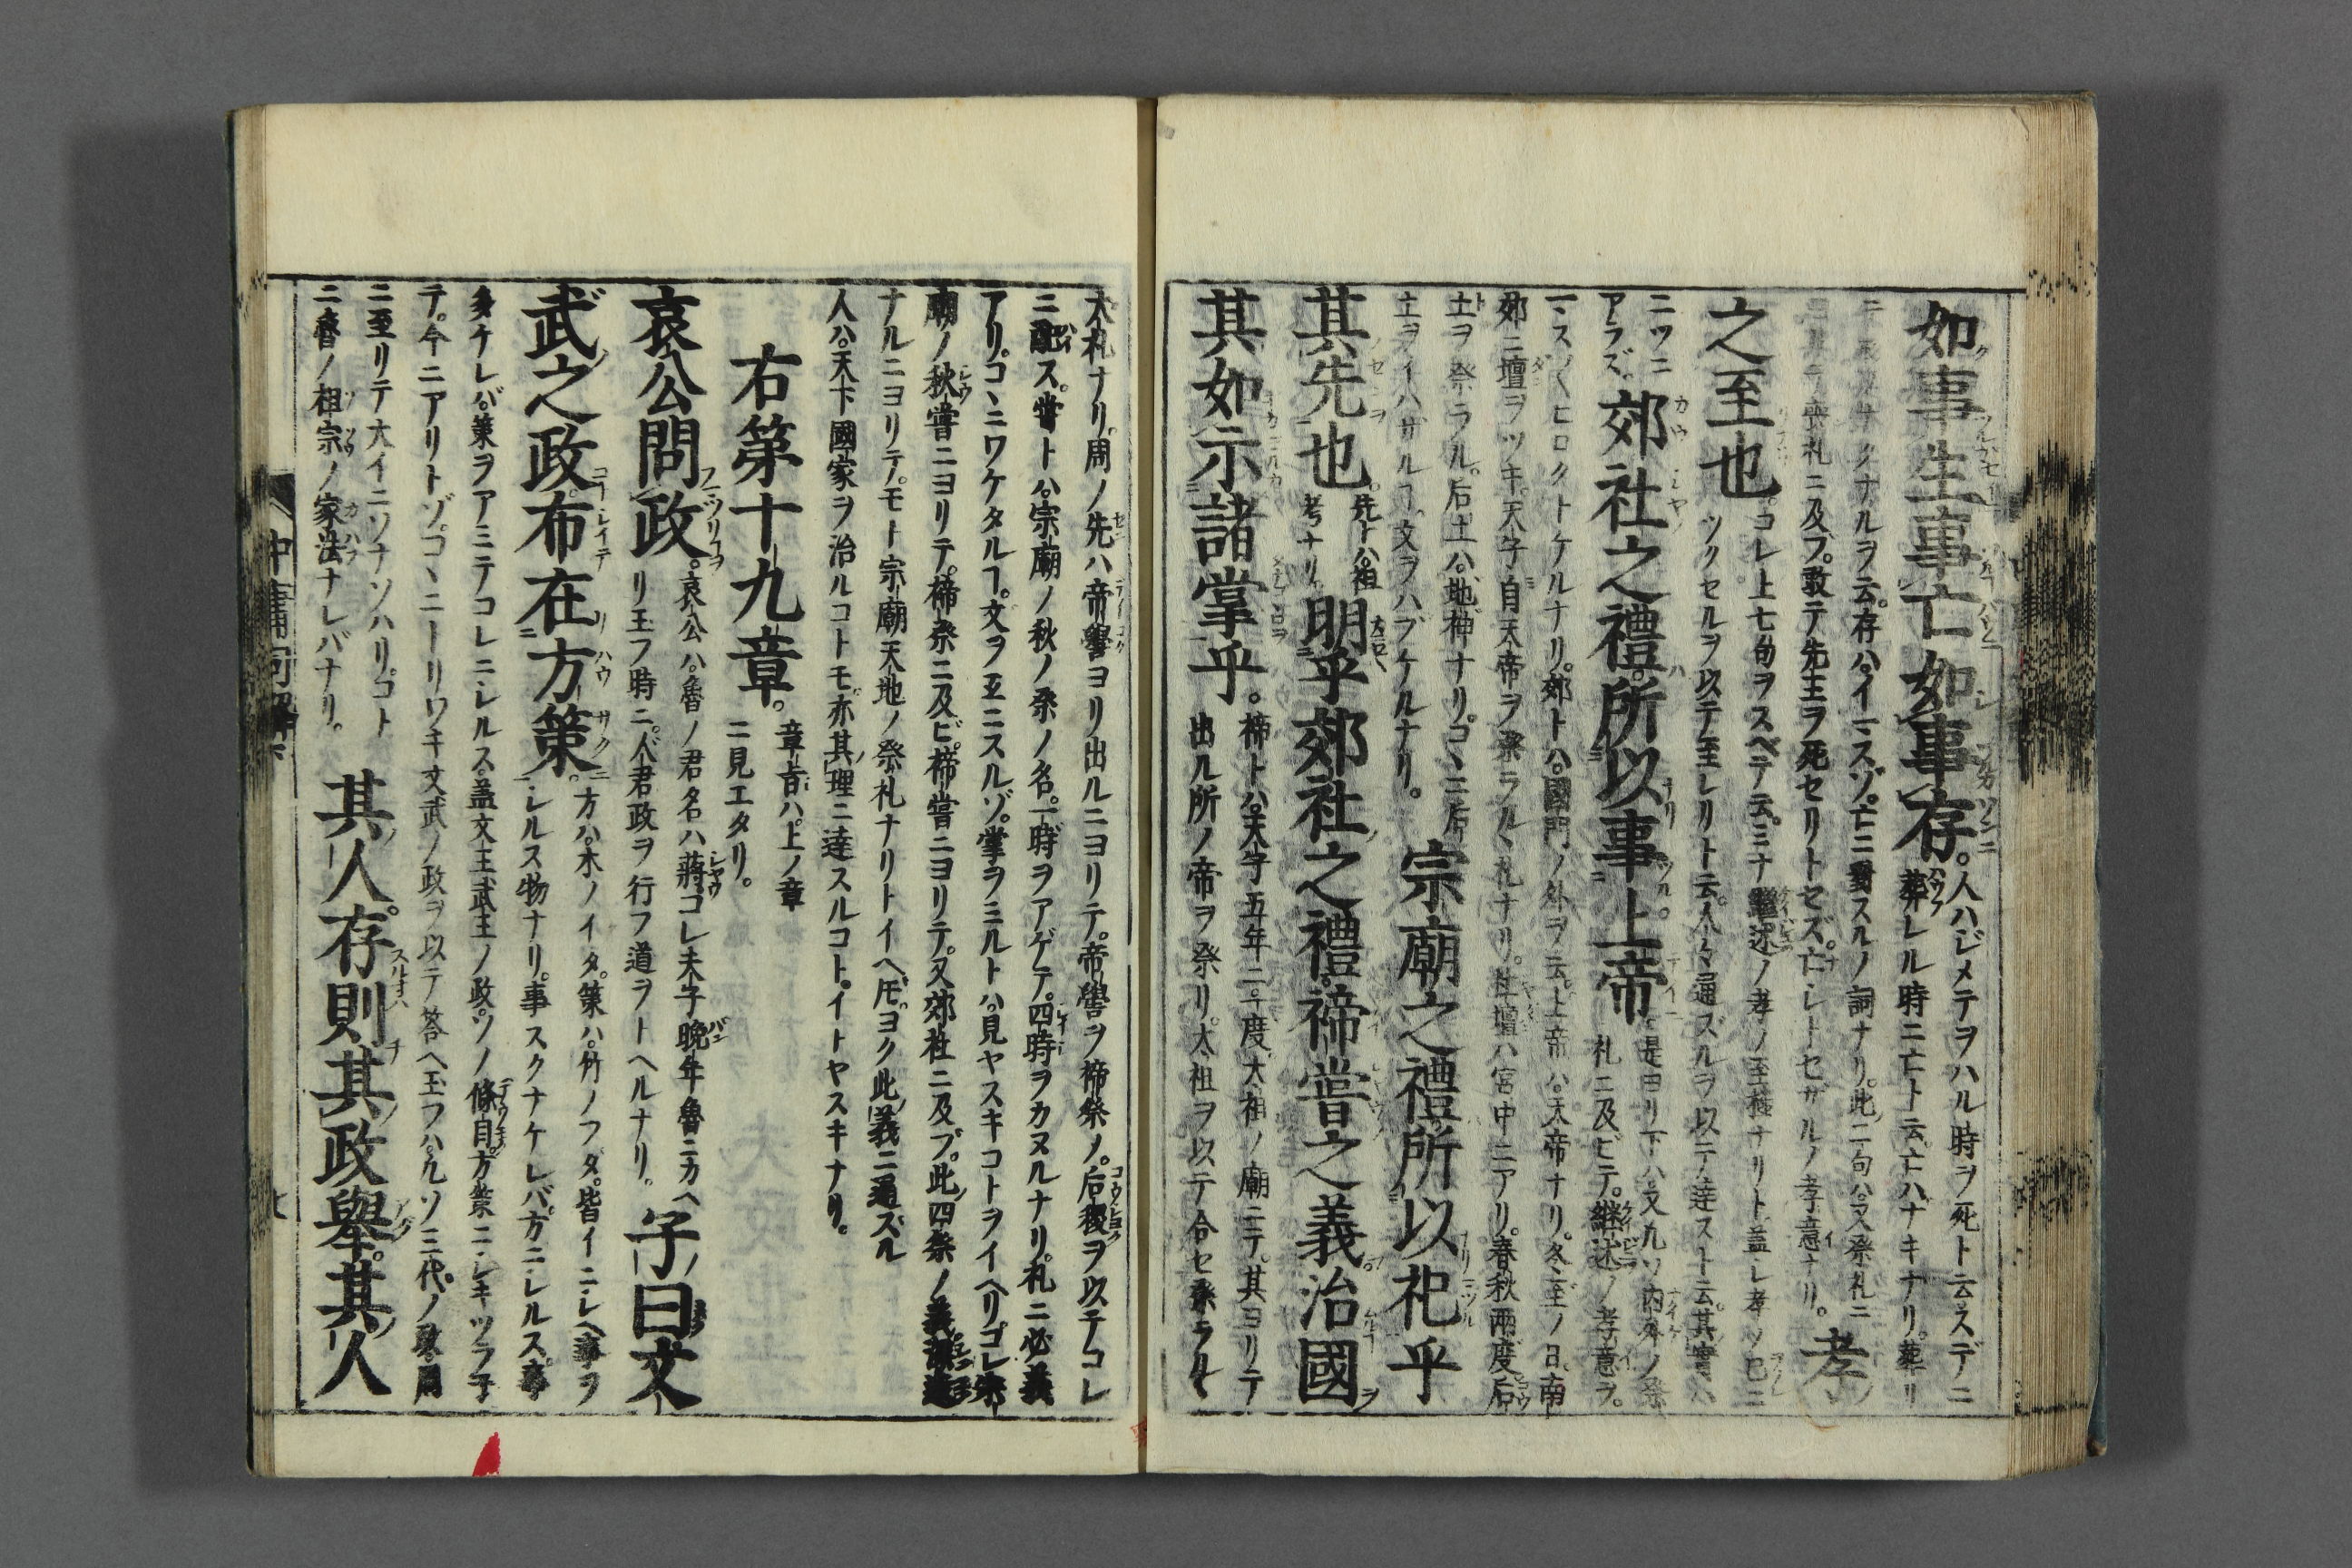 如事生事亡如事存。人ハジメテヲハル時ヲ死ト云スデニ
葬レル時ニ亡ト云亡ハナキナリ。葬リ
サクナルヲ云。存ハイマスゾ。亡ニ對スルノ詞ナリ。此二句ハ又祭礼ニ
喪礼ニ及ブ。敢テ先王ヲ死セリトセズ。亡シトセザルノ孝意ナリ。孝
之至也。コレ上七句ヲスベテ云。ミナ繼述ノ孝ノ至極ナリト。蓋シ孝ノ己ニ
ツクセルヲ以テ至レリト云。人々通ズルヲ以テ達スト云。其實ハ
ニツニアラズ。郊社之禮。所以事上帝是ヨリ下ハ又凡ソ内外ノ祭
礼ニ及ビテ。継述ノ孝意ヲ。
マスヽヽヒロクトケルナリ。郊トハ。國門ノ外ヲ云。上帝ハ。天帝ナリ。冬至ノ日。南
郊ニ壇ヲツキ。天子自天帝ヲ祭ラルヽ礼ナリ。社壇ハ宮中ニアリ。春秋兩度后
土ヲ祭ラル。后土ハ。地神ナリ。コヽニ后
土ヲイハザルヿ。文ヲハブケルナリ。宗廟之禮。所以祀乎
其先也。先トハ。祖
考ナリ。明乎郊社之禮。禘嘗之義。治國
其如示諸掌乎。禘トハ。天子五年ニ一度。大祖ノ廟ニテ。其ヨリテ
出ル所ノ帝ヲ祭リ。太祖ヲ以テ合セ祭ラルヽ
大礼ナリ。周ノ先ハ帝嚳ヨリ出ルニヨリテ。帝嚳ヲ禘祭ノ。后稷ヲ以テコレ
ニ配ス。嘗トハ。宗廟ノ秋ノ祭ノ名。一時ヲアゲテ。四時ヲカヌルナリ。礼ニ必義
アリ。コヽニワケタルヿ。文ヲ互ニスルゾ。掌ヲミルトハ。見ヤスキコトヲイヘリ。コレ宗
廟ノ秋嘗ニヨリテ。禘祭ニ及ビ。禘嘗ニヨリテ。又郊社ニ及ブ。此四祭ノ義
ナルニヨリテ。モト宗廟天地ノ祭礼ナリトイヘ𪜈。ヨク此義ニ通ズル
人ハ。天下國家ヲ治ルコトモ亦其理ニ達スルコト。イトヤスキナリ。
右第十九章。章旨ハ。上ノ章
ニ見エタリ。
哀公問政。哀公ハ。魯ノ君名ハ蔣。コレ夫子晩年魯ニカヘ
リ玉フ時ニ。人君政ヲ行フ道ヲトヘルナリ。子曰文
武之政布在方策。方ハ。木ノイタ。策ハ。竹ノフダ。皆イニシヘ事ヲ
シルス物ナリ。事スクナケレバ。方ニシルス。事
多ケレバ。策ヲアミテコレニシルス。蓋文王武王ノ政。ソノ條目。方策ニシキツラ子
テ。今ニアリトゾ。コヽニトリワキ文武ノ政ヲ以テ荅ヘ玉フハ。凡ソ三代ノ政。周
ニ至リテ大イニソナソハリ。コト
ニ魯ノ祖宗ノ家法ナレバナリ。其人存。則其政舉。其人
中庸 七